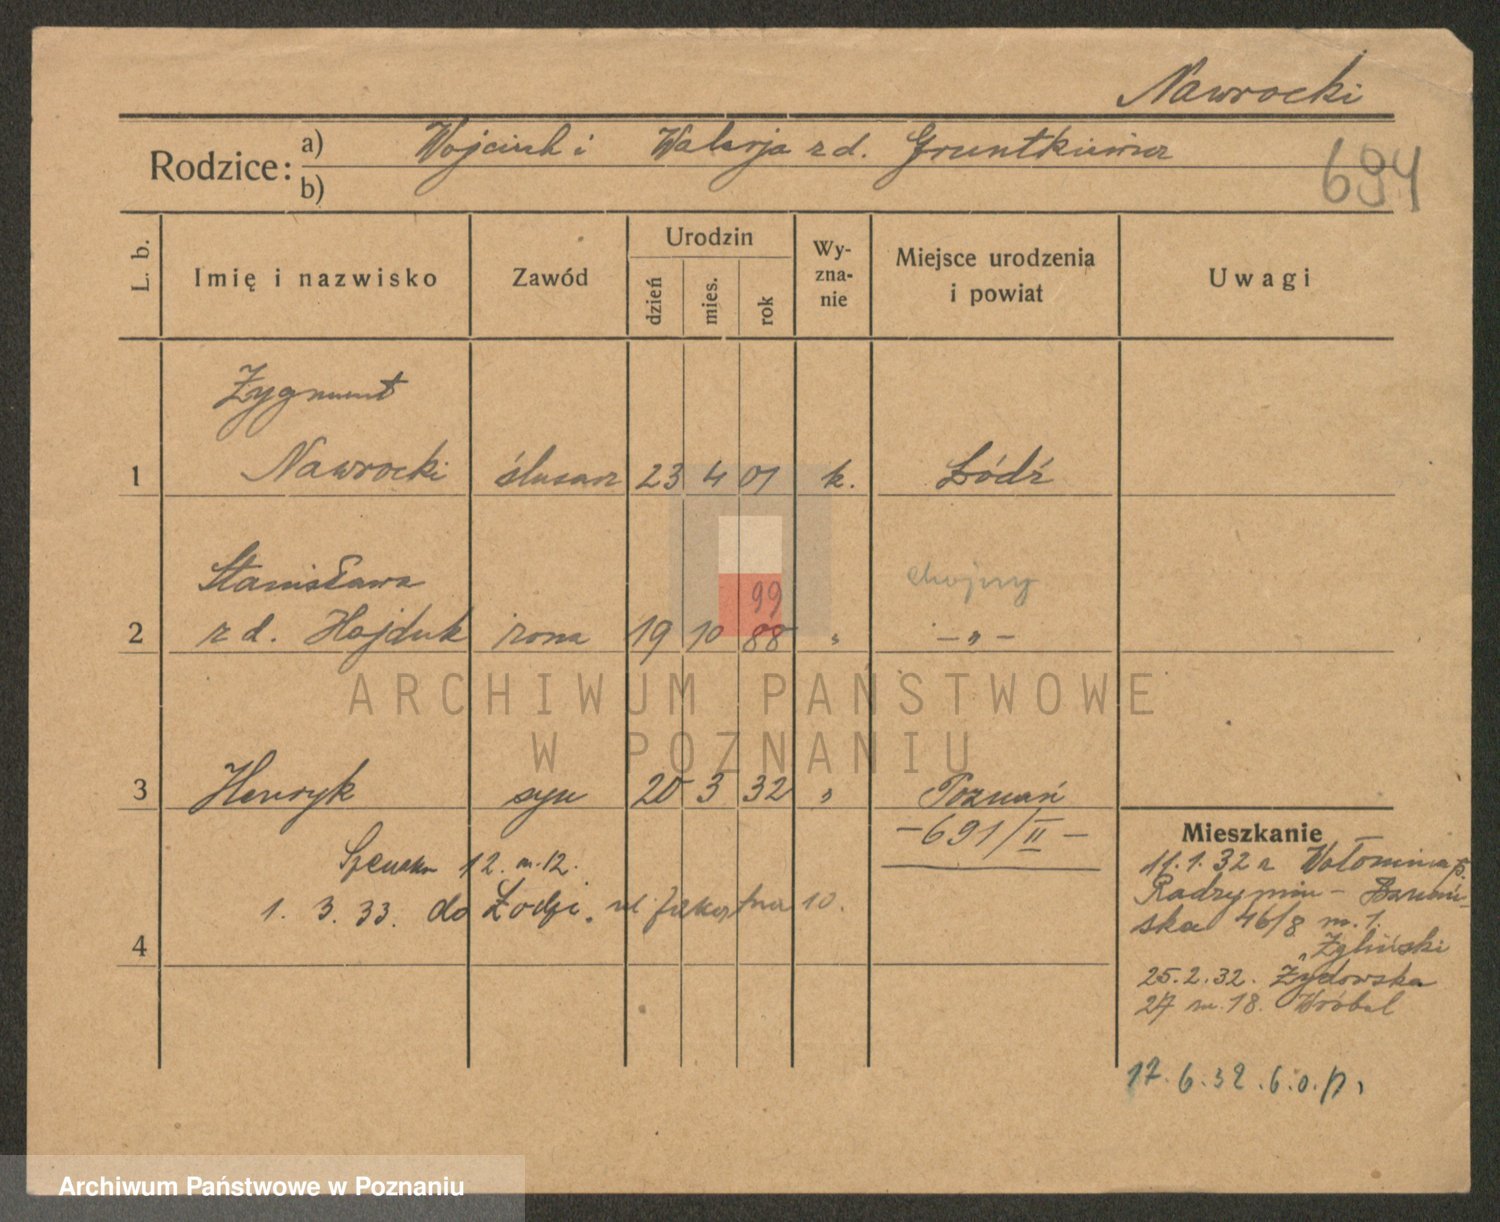 Nawrocki
Rodzice:
a) Wojciech i Walerja z d. Gruntkiewicz
b)
694
L. b.
Imię i nazwisko
Zawód
Urodzin
dzień
mies.
rok
Wy-
zna-
nie
Miejsce urodzenia
i powiat
Uwagi
Zygmunt
1 Nawrocki ślusarz 23 4 01 k. Łódź
Stanisława 99 Chojny
2 z d. Hajduk żona 19 10 88 „ — „ —
ARCHIWUM PAŃSTWOWE
W POZNANIU
3 Henryk syn 20 3 32 „ Poznań
— 691/II —
12 m. 12.
1. 3. 33. do Łodzi. ul 10.
4
Mieszkanie
11.1.32 z Wołomina p.
Radzymin -
ska 46/8 m. 1.
„ Żyliński
25.2.32. Żydowska
27 m. 18. Wróbel
17.6.32. 6.o.p.
Archiwum Państwowe w Poznaniu